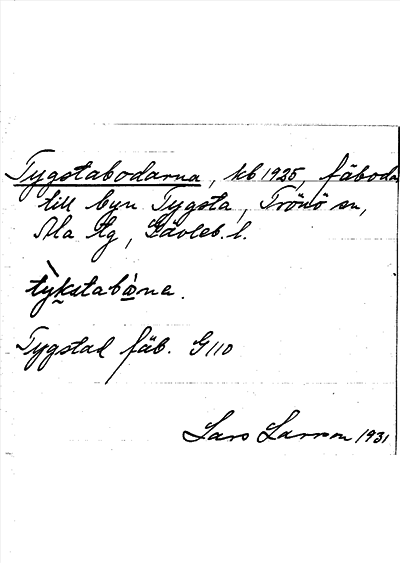 Tygstabodarna, kb 1925, fäbodar
till byn Tygsta, Trönö sn,
Ala tg, Gävleb. l.
tỳkstabòna.
Tygstad fäb. G110
Lars Larsson 1931